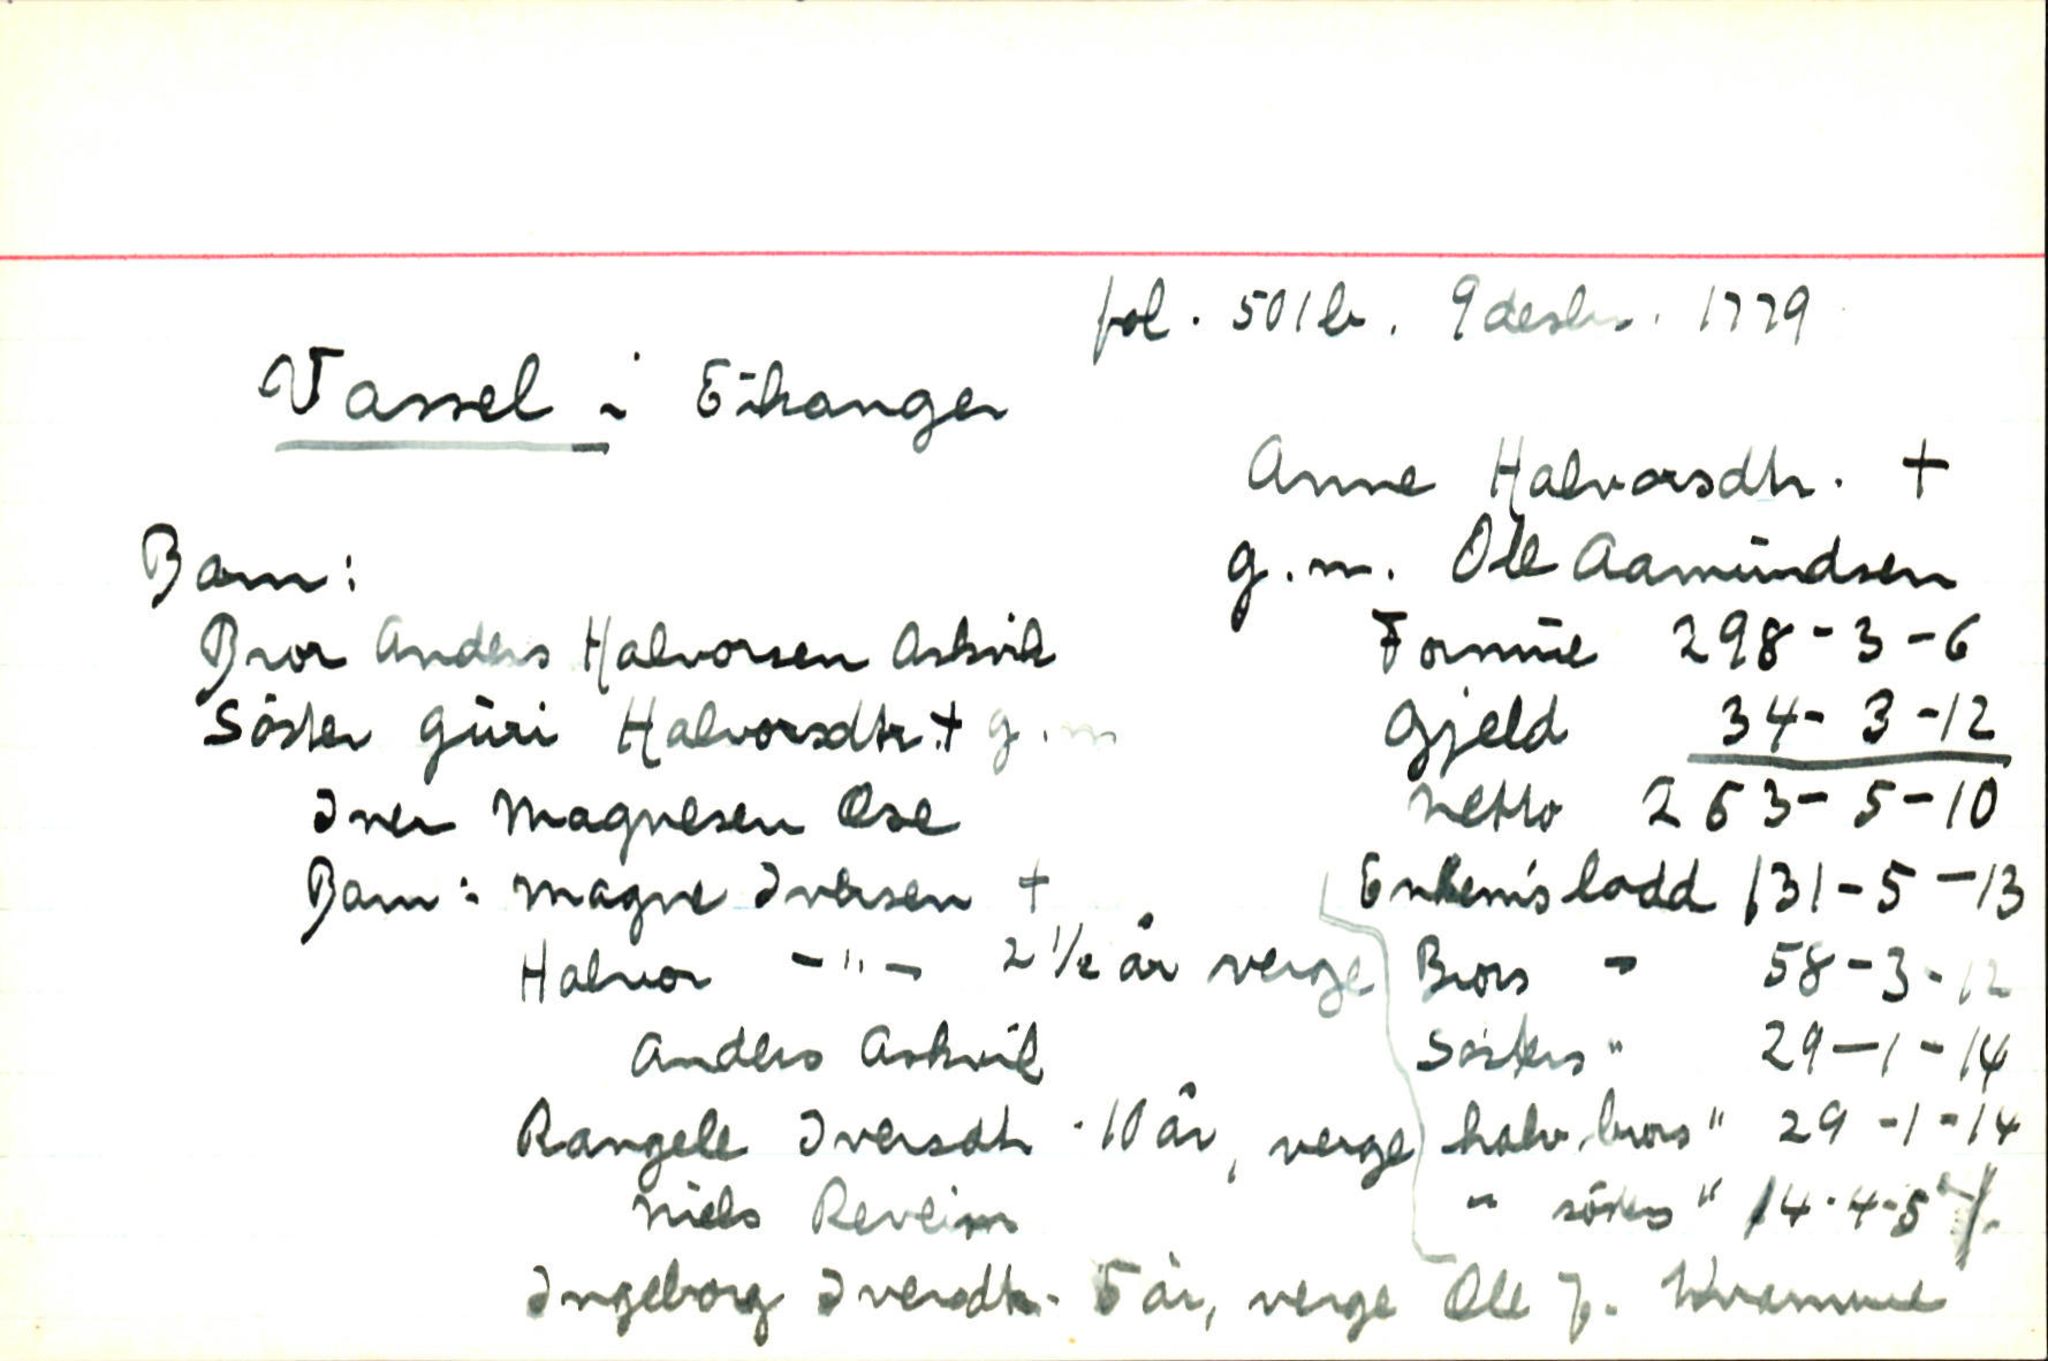 fol. 501b. 9 desbr. 1779
Vassel i Eikanger
Anne Halvorsdtr. +
g.m. Ole Aamundsen
Barn:
Bror Anders Halvorsen Askvik
Söster Guri Halvorsdtr. + g.m
Iver Magnesen Ose
Barn: Magne Iversen +
Halvor -"- 2 1/2 år verge
Anders Askvik
Rangele Iversdtr. 10 år, verge
Niels Reveim
Ingeborg Iversdtr. 5 år, verge Ole J. Kvamme
Formue 298-3-6
Gjeld 34-3-12
Netto 263-5-10
Enkem's lodd 131-5-13
Brors " 58-3-12
Sösters " 29-1-14
halv brors " 29-1-14
" sösters " 14-4-5